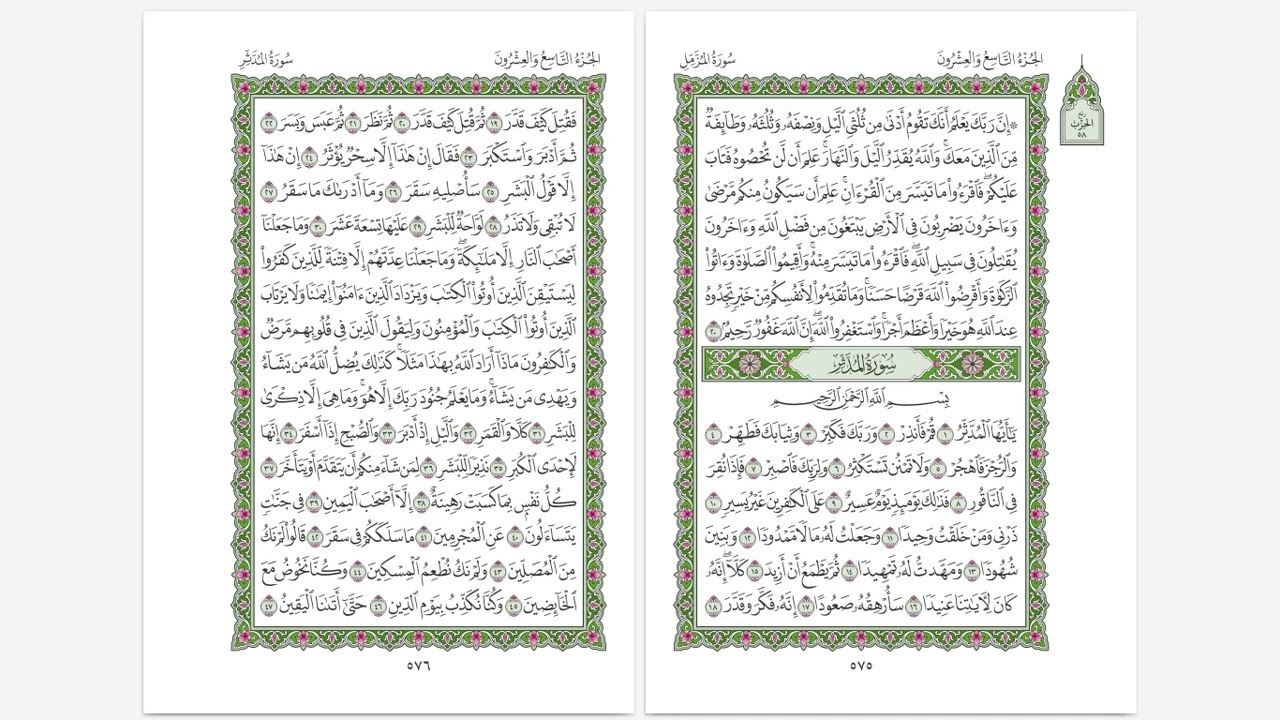 الجزء التاسع والعشرون
سورة المزمل
ربع
الحزب
٥٨
۞ إِنَّ رَبَّكَ يَعْلَمُ أَنَّكَ تَقُومُ أَدْنَىٰ مِن ثُلُثَىِ ٱلَّيْلِ وَنِصْفَهُۥ وَثُلُثَهُۥ وَطَآئِفَةٌ
مِّنَ ٱلَّذِينَ مَعَكَۚ وَٱللَّهُ يُقَدِّرُ ٱلَّيْلَ وَٱلنَّهَارَۚ عَلِمَ أَن لَّن تُحْصُوهُ فَتَابَ
عَلَيْكُمْۖ فَٱقْرَءُوا۟ مَا تَيَسَّرَ مِنَ ٱلْقُرْءَانِۚ عَلِمَ أَن سَيَكُونُ مِنكُم مَّرْضَىٰ
وَءَاخَرُونَ يَضْرِبُونَ فِى ٱلْأَرْضِ يَبْتَغُونَ مِن فَضْلِ ٱللَّهِ وَءَاخَرُونَ
يُقَٰتِلُونَ فِى سَبِيلِ ٱللَّهِۖ فَٱقْرَءُوا۟ مَا تَيَسَّرَ مِنْهُۚ وَأَقِيمُوا۟ ٱلصَّلَوٰةَ وَءَاتُوا۟
ٱلزَّكَوٰةَ وَأَقْرِضُوا۟ ٱللَّهَ قَرْضًا حَسَنًاۚ وَمَا تُقَدِّمُوا۟ لِأَنفُسِكُم مِّنْ خَيْرٍ تَجِدُوهُ
عِندَ ٱللَّهِ هُوَ خَيْرًا وَأَعْظَمَ أَجْرًاۚ وَٱسْتَغْفِرُوا۟ ٱللَّهَۖ إِنَّ ٱللَّهَ غَفُورٌ رَّحِيمٌۢ ٢٠
سورة المدثر
بِسْمِ ٱللَّهِ ٱلرَّحْمَٰنِ ٱلرَّحِيمِ
يَٰٓأَيُّهَا ٱلْمُدَّثِّرُ ١ قُمْ فَأَنذِرْ ٢ وَرَبَّكَ فَكَبِّرْ ٣ وَثِيَابَكَ فَطَهِّرْ ٤
وَٱلرُّجْزَ فَٱهْجُرْ ٥ وَلَا تَمْنُن تَسْتَكْثِرُ ٦ وَلِرَبِّكَ فَٱصْبِرْ ٧ فَإِذَا نُقِرَ
فِى ٱلنَّاقُورِ ٨ فَذَٰلِكَ يَوْمَئِذٍ يَوْمٌ عَسِيرٌ ٩ عَلَى ٱلْكَٰفِرِينَ غَيْرُ يَسِيرٍ ١٠
ذَرْنِى وَمَنْ خَلَقْتُ وَحِيدًا ١١ وَجَعَلْتُ لَهُۥ مَالًا مَّمْدُودًا ١٢ وَبَنِينَ
شُهُودًا ١٣ وَمَهَّدتُّ لَهُۥ تَمْهِيدًا ١٤ ثُمَّ يَطْمَعُ أَنْ أَزِيدَ ١٥ كَلَّآۖ إِنَّهُۥ
كَانَ لِءَايَٰتِنَا عَنِيدًا ١٦ سَأُرْهِقُهُۥ صَعُودًا ١٧ إِنَّهُۥ فَكَّرَ وَقَدَّرَ ١٨
٥٧٥
الجزء التاسع والعشرون
سورة المدثر
فَقُتِلَ كَيْفَ قَدَّرَ ١٩ ثُمَّ قُتِلَ كَيْفَ قَدَّرَ ٢٠ ثُمَّ نَظَرَ ٢١ ثُمَّ عَبَسَ وَبَسَرَ ٢٢
ثُمَّ أَدْبَرَ وَٱسْتَكْبَرَ ٢٣ فَقَالَ إِنْ هَٰذَآ إِلَّا سِحْرٌ يُؤْثَرُ ٢٤ إِنْ هَٰذَآ
إِلَّا قَوْلُ ٱلْبَشَرِ ٢٥ سَأُصْلِيهِ سَقَرَ ٢٦ وَمَآ أَدْرَىٰكَ مَا سَقَرُ ٢٧
لَا تُبْقِى وَلَا تَذَرُ ٢٨ لَوَّاحَةٌ لِّلْبَشَرِ ٢٩ عَلَيْهَا تِسْعَةَ عَشَرَ ٣٠ وَمَا جَعَلْنَآ
أَصْحَٰبَ ٱلنَّارِ إِلَّا مَلَٰٓئِكَةًۖ وَمَا جَعَلْنَا عِدَّتَهُمْ إِلَّا فِتْنَةً لِّلَّذِينَ كَفَرُوا۟
لِيَسْتَيْقِنَ ٱلَّذِينَ أُوتُوا۟ ٱلْكِتَٰبَ وَيَزْدَادَ ٱلَّذِينَ ءَامَنُوٓا۟ إِيمَٰنًا وَلَا يَرْتَابَ
ٱلَّذِينَ أُوتُوا۟ ٱلْكِتَٰبَ وَٱلْمُؤْمِنُونَ وَلِيَقُولَ ٱلَّذِينَ فِى قُلُوبِهِم مَّرَضٌ
وَٱلْكَٰفِرُونَ مَاذَآ أَرَادَ ٱللَّهُ بِهَٰذَا مَثَلًاۚ كَذَٰلِكَ يُضِلُّ ٱللَّهُ مَن يَشَآءُ
وَيَهْدِى مَن يَشَآءُۚ وَمَا يَعْلَمُ جُنُودَ رَبِّكَ إِلَّا هُوَۚ وَمَا هِىَ إِلَّا ذِكْرَىٰ
لِلْبَشَرِ ٣١ كَلَّا وَٱلْقَمَرِ ٣٢ وَٱلَّيْلِ إِذْ أَدْبَرَ ٣٣ وَٱلصُّبْحِ إِذَآ أَسْفَرَ ٣٤ إِنَّهَا
لَإِحْدَى ٱلْكُبَرِ ٣٥ نَذِيرًا لِّلْبَشَرِ ٣٦ لِمَن شَآءَ مِنكُمْ أَن يَتَقَدَّمَ أَوْ يَتَأَخَّرَ ٣٧
كُلُّ نَفْسٍۭ بِمَا كَسَبَتْ رَهِينَةٌ ٣٨ إِلَّآ أَصْحَٰبَ ٱلْيَمِينِ ٣٩ فِى جَنَّٰتٍ
يَتَسَآءَلُونَ ٤٠ عَنِ ٱلْمُجْرِمِينَ ٤١ مَا سَلَكَكُمْ فِى سَقَرَ ٤٢ قَالُوا۟ لَمْ نَكُ
مِنَ ٱلْمُصَلِّينَ ٤٣ وَلَمْ نَكُ نُطْعِمُ ٱلْمِسْكِينَ ٤٤ وَكُنَّا نَخُوضُ مَعَ
ٱلْخَآئِضِينَ ٤٥ وَكُنَّا نُكَذِّبُ بِيَوْمِ ٱلدِّينِ ٤٦ حَتَّىٰٓ أَتَىٰنَا ٱلْيَقِينُ ٤٧
٥٧٦